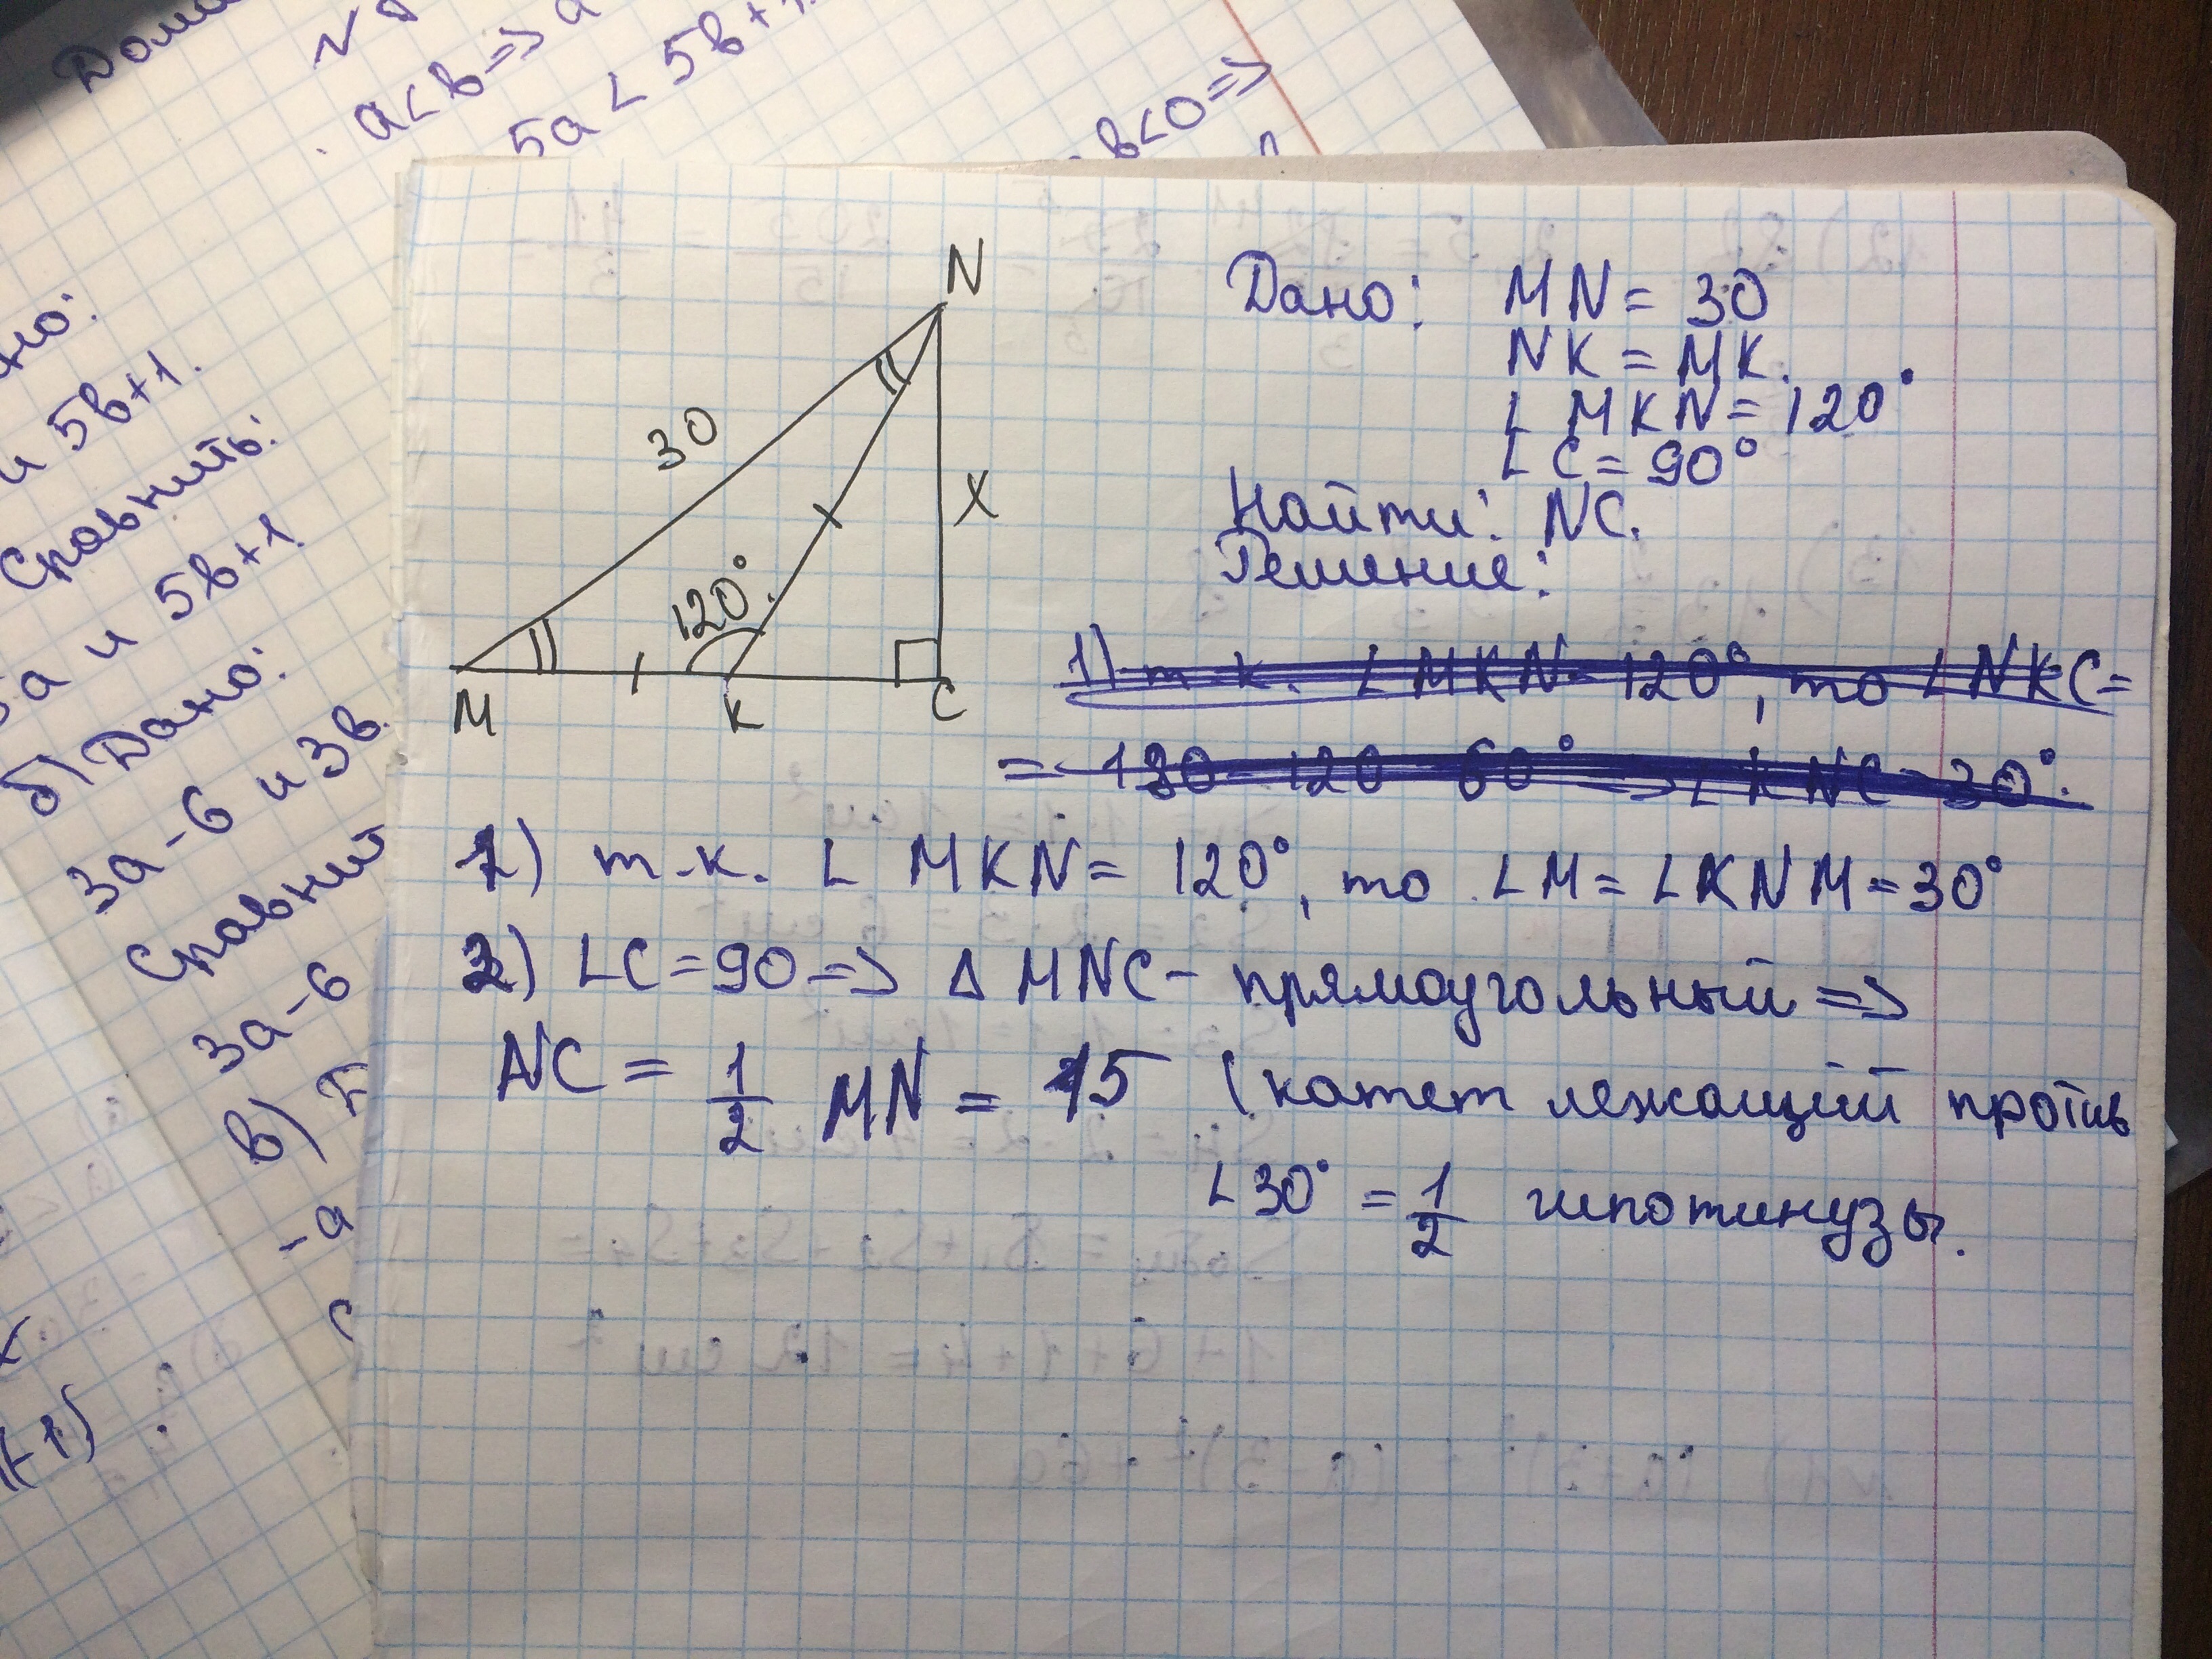 Дома
a<b=>a
5a<5b+1.
b<0=>
но:
и 5b+1.
Сравнить:
5a и 5b+1
б) Дано:
3a-6 и 3b.
Сравнит
3a-6
в)
-a
+1)
N
30
X
120°.
M
K
C
Дано: MN=30
NK=MK.
∠MKN=120°
∠C=90°
Найти: NC.
Решение:
1) т.к. ∠MKN=120°, то ∠NKC=
=180-120=60°=>∠KNC=30°.
1) т.к. ∠MKN=120°, то ∠M=∠KNM=30°
2) ∠C=90=>ΔMNC- прямоугольный=>
NC=1/2 MN=15 (катет лежащий против
∠30°=1/2 гипотинузы.